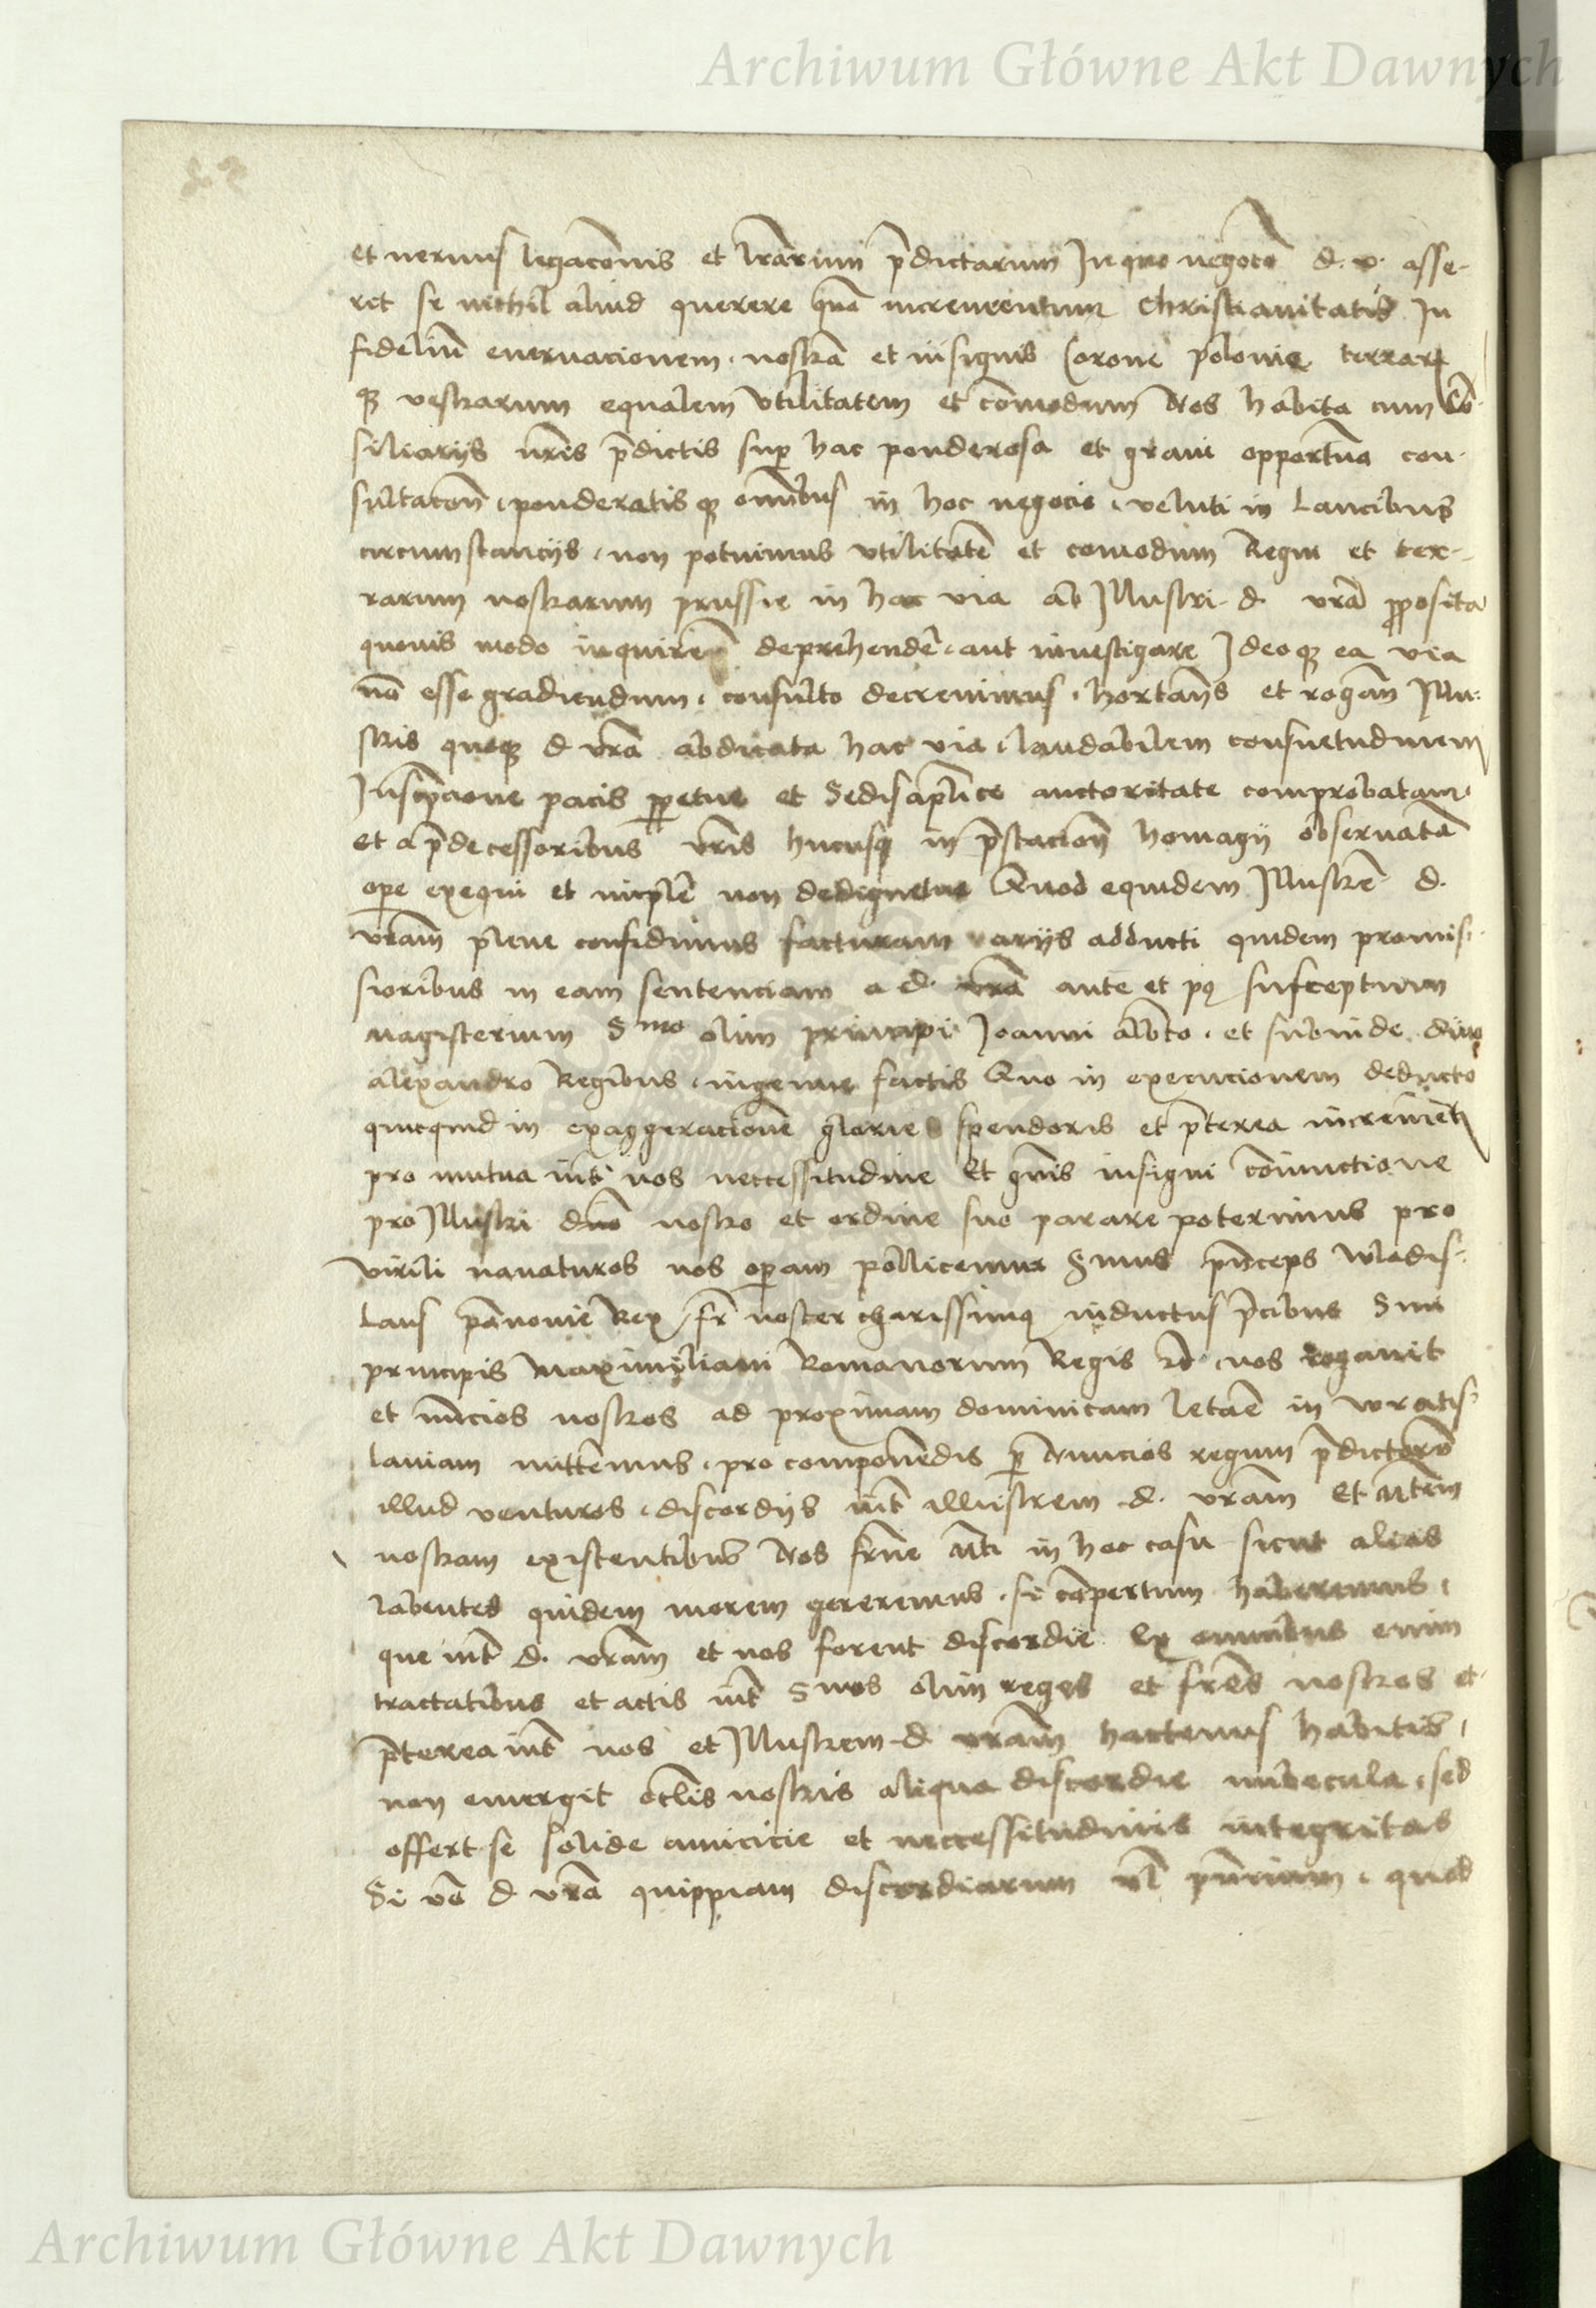 Archiwum Główne Akt Dawnych
et neruus legac̄onis et l̄rarum p̄dictarum In quo negoc̄o d. v. asse-
ret se nichil aliud querere qua̅ incrementum Christianitatis In
fidelium̅ eneruacionem nostra̅ et insignis Corone polonie terrar
qꝫ vestrarum equalem vtilitatem et co̅modum Nos habita cum Co̅-
siliarijs n̅ris p̄dictis sup̱ hac ponderosa et graui opportuna con-
sultac̄on ponderatisqꝫ omnibus in hoc negocio veluti in Lancibus
circumstancijs non potuimus vtilitate̅ et comodum Regni et ter-
rarum nostrarum prussie in hac via ab Illustri d. vr̄a proposita
quouis modo inquirere deprehende̅ aut inuestigare Ideoqꝫ ea via
no̅ esse gradiendum consulto decreuimus hortan̅s et rogan̅ Illu-
stris quoqꝫ d vr̄a abdicata hac via laudabilem consuetudinem
Inscripcione pacis ꝑpetue et Sedis ap̄lice auctoritate comprobatam
et a p̄decessoribus vr̄is hucusqꝫ in p̄stacion̅ homagij obseruata̅
oꝑe exequi et imple̅ non dedignetur Quod equidem Illustre̅ d.
vr̄am plene confidimus facturam varijs adducti quidem promis-
sioribus in eam sentenciam a d. vr̄a ante et pꝯ susceptum
magisterium Smo olim principi Joanni alb̅to et subinde diuo
alexandro Regibus ingenue factis Quo in execucionem deducto
quicquid in exaggeracione̅ glorie spendoris et p̄terea increment
pro mutua int̅ nos neccessitudine Et gn̅is insigni coniunctione
pro Illustri d̅no nostro et ordine suo parare poterimus pro
virili nauaturos nos oꝑam pollicemur Smus pn̅ceps wladis-
laus pa̅nonie Rex fr̄ noster charissimꝯ inductus p̄cibus Smi
principis maximiliani Romanorum Regis nos rogauit
et nu̅cios nostros ad proximam dominicam leta̅e in wratis-
lauiam mittemus pro componendis ꝑ Nuncios regum p̄dictoru̅
illud venturos discordijs int̅ illustrem d. vr̄am Et M̅tem
nostram existentibus Nos in hoc casu sicut alias
labentes quidem morem gereremus si co̅pertum haberemus
que int̅ d. vr̄am et nos forent discordie Ex omnibus enim
tractatibus et actis int̅ Smos olim reges et fr̄es nostros et
p̄terea int̅ nos et Illustrem d vr̄am hactenus habitis
non emergit oc̄lis nostris aliqua discordie nubecula sed
offert se solide amicicie et neccessitudinis integritas
Si vo̅ d vr̄a quippiam discordiarum vl̅ quod
Archiwum Główne Akt Dawnych